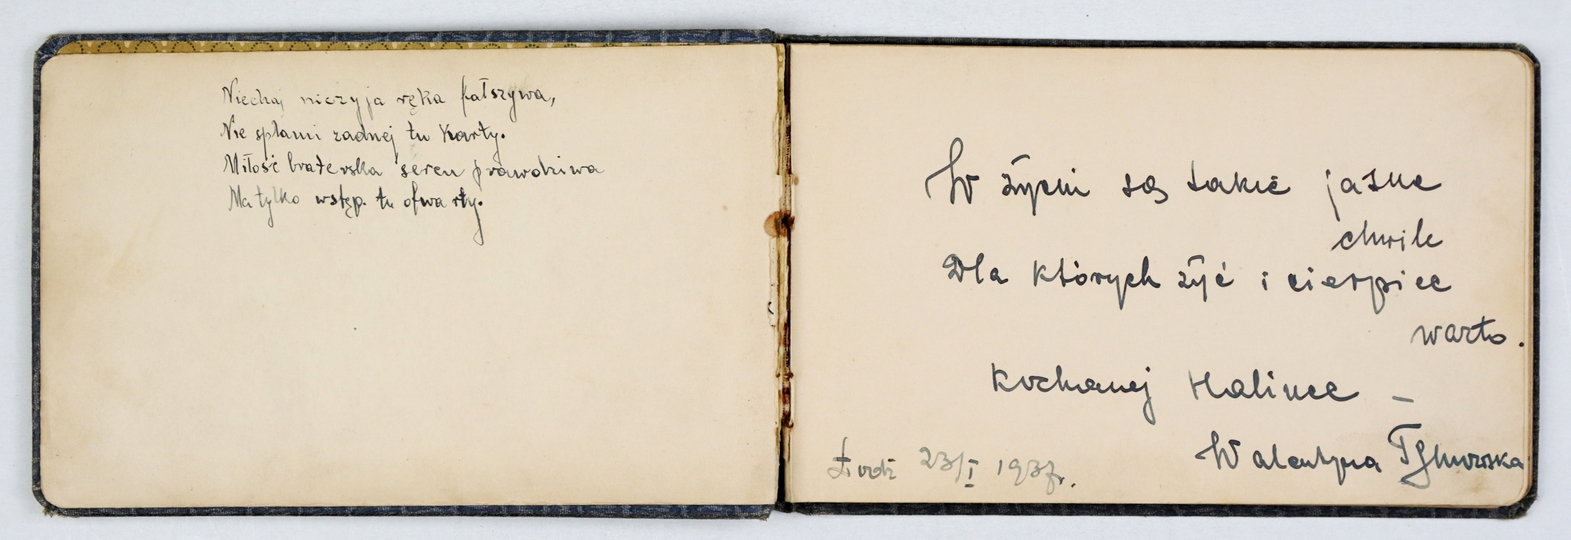 Niechaj niczyja ręka fałszywa,
Nie splami żadnej tu Karty.
Miłość braterska seren prawdziwa
Ma tylko wstęp. tu otwarty.
W życiu są takie jasne
chwile
Dla których żyć i cierpieć
warto.
Kochanej Halince –
Walentyna
Łódź 23/I 1937r.